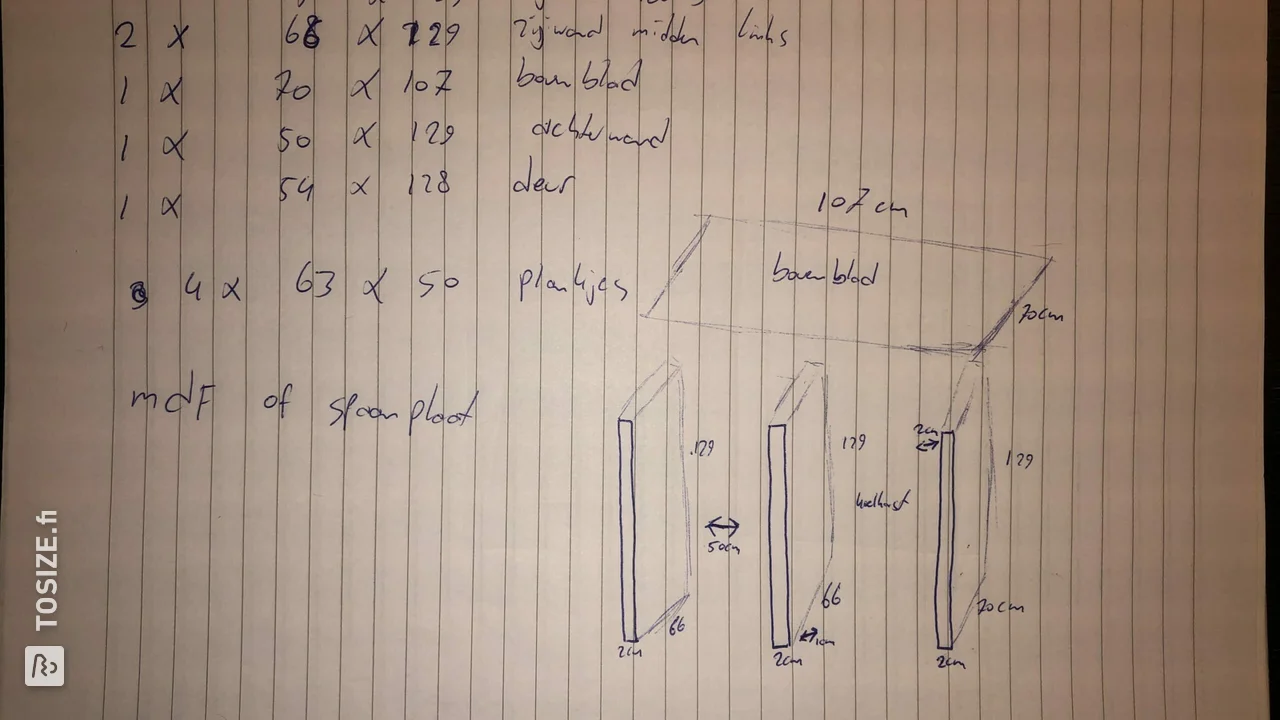 2 x 66 x 129 zijwand midden links
1 x 70 x 107 bovenblad
1 x 50 x 129 achterwand
1 x 54 x 128 deur
4 x 63 x 50 plankjes
mdf of spaanplaat
107 cm
bovenblad
70cm
129
129
2cm
129
koelkast
50cm
66
66
1cm
70cm
2cm
2cm
2cm
TOSIZE.fi